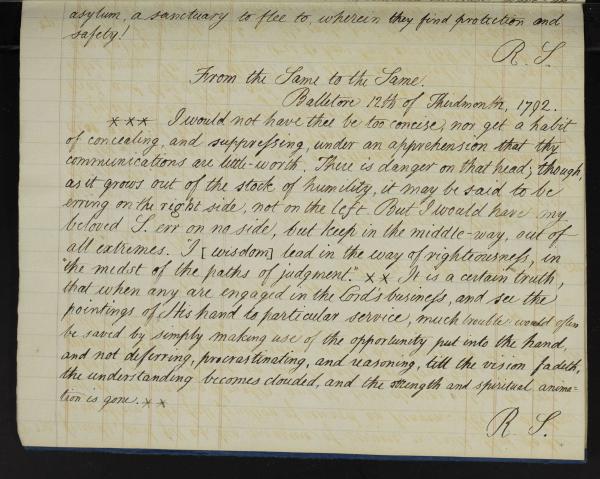 asylum, a sanctuary to flee to, wherein they find protection and
safety!
R. S.
From the Same to the Same.
Balletore 12th of Thirdmonth, 1792.
× × × I would not have thee be too concise, nor get a habit
of concealing, and suppressing, under an apprehension that thy
communications are little-worth. There is danger on that head; though,
as it grows out of the stock of humility, it may be said to be
erring on the right side, not on the left. But I would have my
beloved S. err on no side, but keep in the middle-way, out of
all extremes. "I [wisdom] lead in the way of righteousness, in
"the midst of the paths of judgment." × × It is a certain truth,
that when any are engaged in the Lord's business, and see the
pointings of His hand to particular service, much trouble would often
be saved by simply making use of the opportunity put into the hand,
and not deferring, procrastinating, and reasoning, till the vision fadeth,
the understanding becomes clouded, and the strength and spiritual anima-
tion is gone. × ×
R. S.